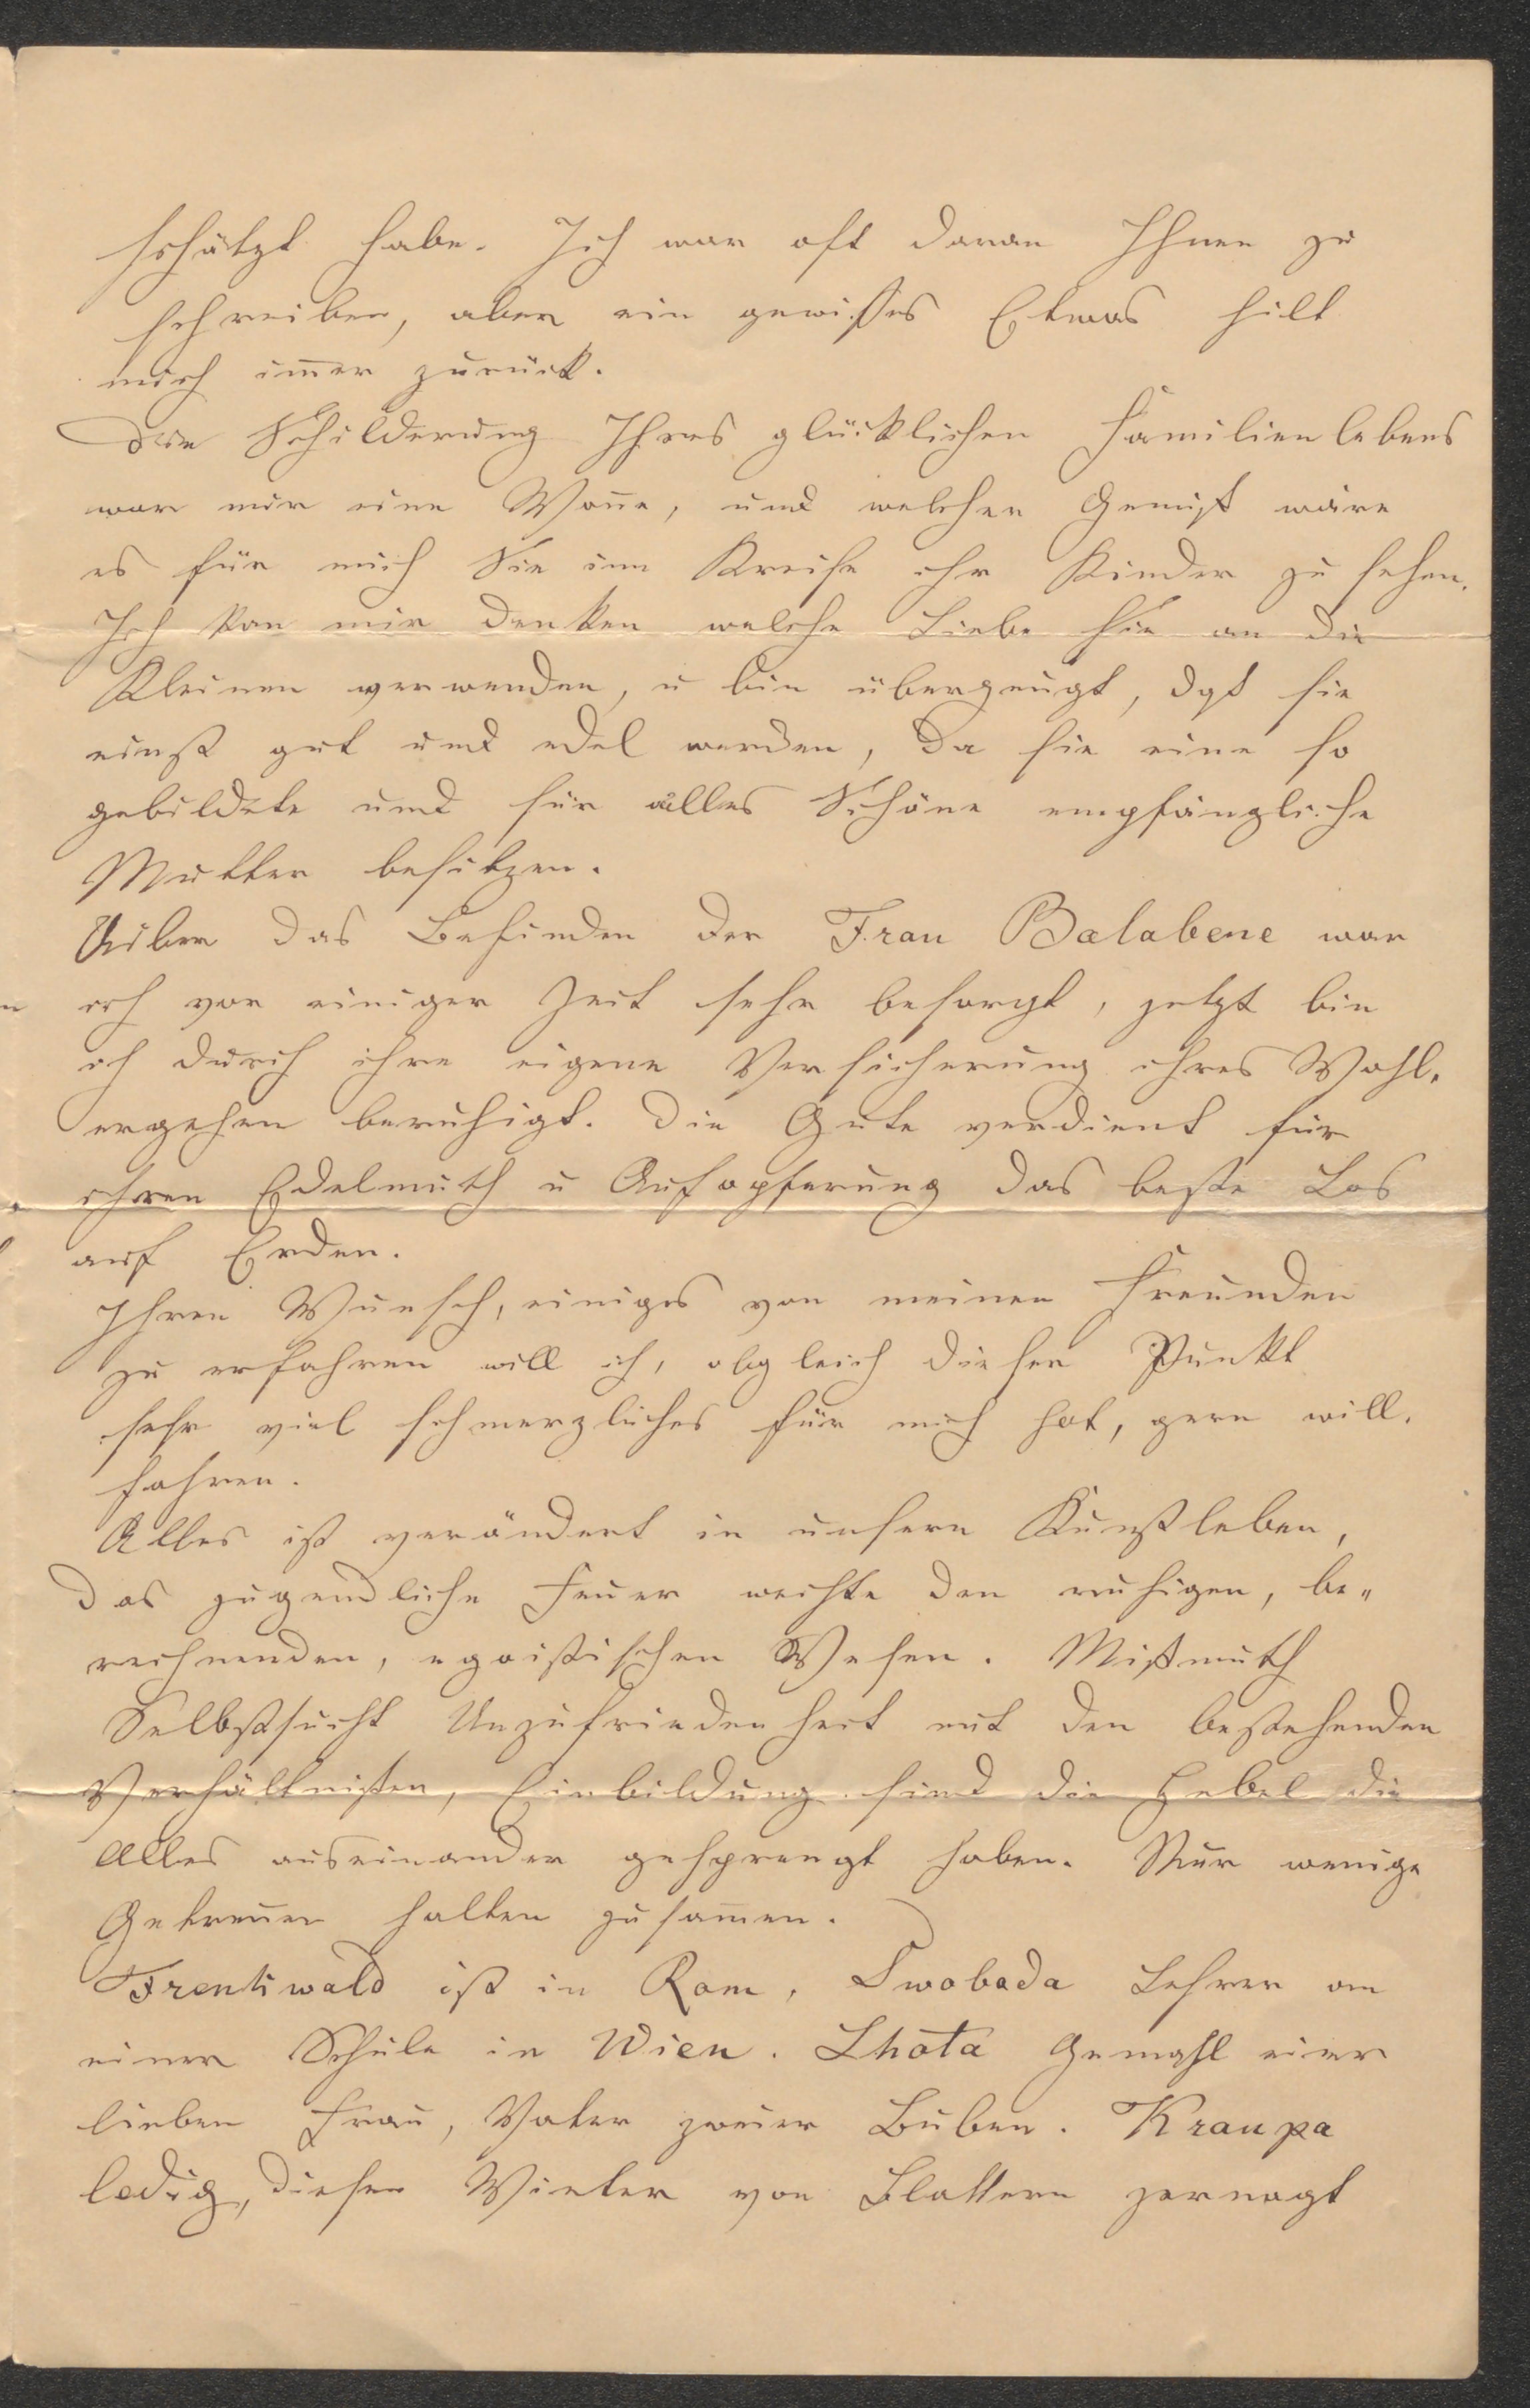 schätzt habe. Ich war oft daran Ihnen zu
schreiben, aber ein gewisses Etwas hilt
mich im̄er zurück.
Die Schilderung Ihres glücklichen Familienlebens
war mir eine Won̄e, und welcher Genuß wäre
es für mich Sie im Kreise ihr Kinder zu sehen.
Ich kan mir denken welche Liebe Sie an die
Kleinen verwenden, u bin überzeugt, daß sie
einst gut und edel werden, da sie eine so
gebildete und für alles Schöne empfängliche
Mutter besitzen.
Uiber das Befinden der Frau Balabene war
ich vor einiger Zeit sehr besorgt, jetzt bin
ich durch ihre eigene Versicherung ihres Wohl-
ergehen beruhigt. Die Gute verdient für
ihren Edelmuth u Aufopferung das beste Los
auf Erden.
Ihren Wunsch, einiges von meinen Freunden
zu erfahren will ich, obgleich dieser Punkt
sehr viel schmerzliches für mich hat, gern will-
fahren.
Alles ist verändert in unsern Kunstleben,
das jugendliche Feuer weichte den ruhigen, be„
rechnenden, egoistischen Wesen. Mißmuth
Selbstsucht Unzufriedenheit mit den bestehenden
Verhältnißen, Einbildung sind die Hebel die
Alles auseinander gesprengt haben. Nur wenige
Getreuen halten zusam̄en.
Trenkwald ist in Rom, Swoboda Lehrer an
einer Schule in Wien. Lhota Gemahl einer
lieben Frau, Vater zweier Buben. Kraupa
ledig, diesen Winter von Blattern zernagt